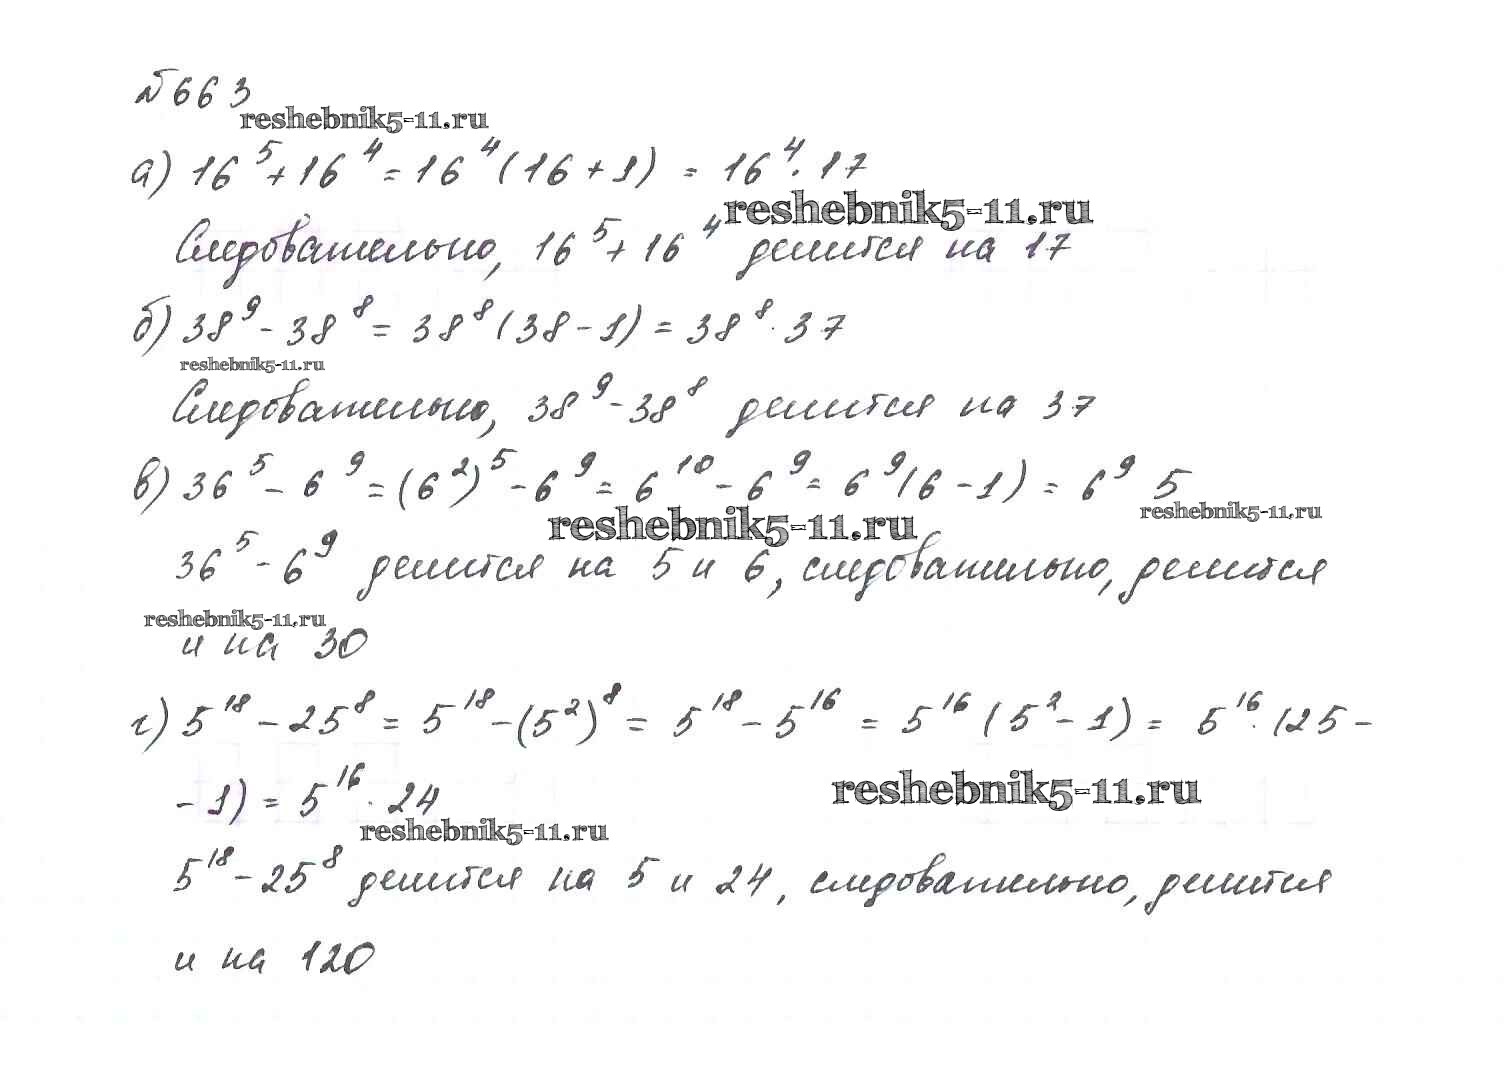 №663
reshebnik5-11.ru
а) 16⁵+16⁴=16⁴(16+1) = 16⁴·17
reshebnik5-11.ru
Следовательно, 16⁵+16⁴ делится на 17
б) 38⁹-38⁸= 38⁸(38-1)=38⁸·37
reshebnik5-11.ru
Следовательно, 38⁹-38⁸ делится на 37
в) 36⁵-6⁹=(6²)⁵-6⁹=6¹⁰-6⁹=6⁹(6-1)=6⁹ 5
reshebnik5-11.ru
reshebnik5-11.ru
36⁵-6⁹ делится на 5 и 6, следовательно, делится
reshebnik5-11.ru
и на 30
г) 5¹⁸-25⁸=5¹⁸-(5²)⁸= 5¹⁸-5¹⁶ = 5¹⁶(5²-1)= 5¹⁶·(25-
-1)=5¹⁶·24
reshebnik5-11.ru
reshebnik5-11.ru
5¹⁸-25⁸ делится на 5 и 24, следовательно, делится
и на 120